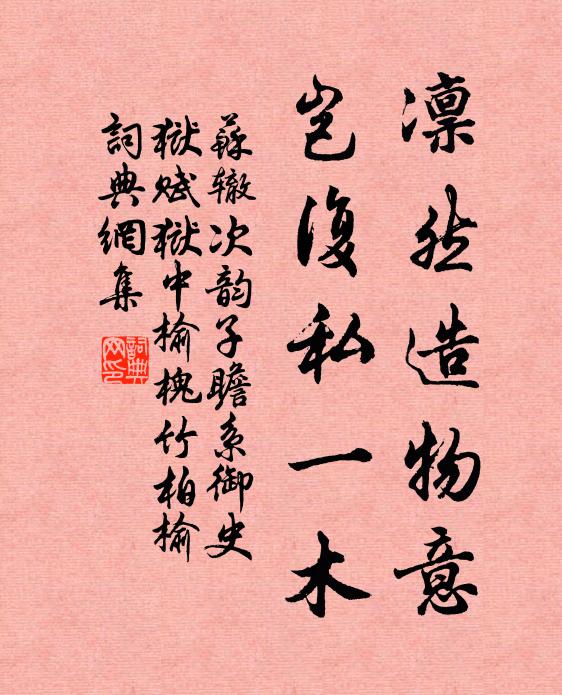 凛然造物意
岂復私一木
蘇辙次韵子瞻系御史
獄赋獄中榆槐竹柏榆
詞典網集
詞典网印